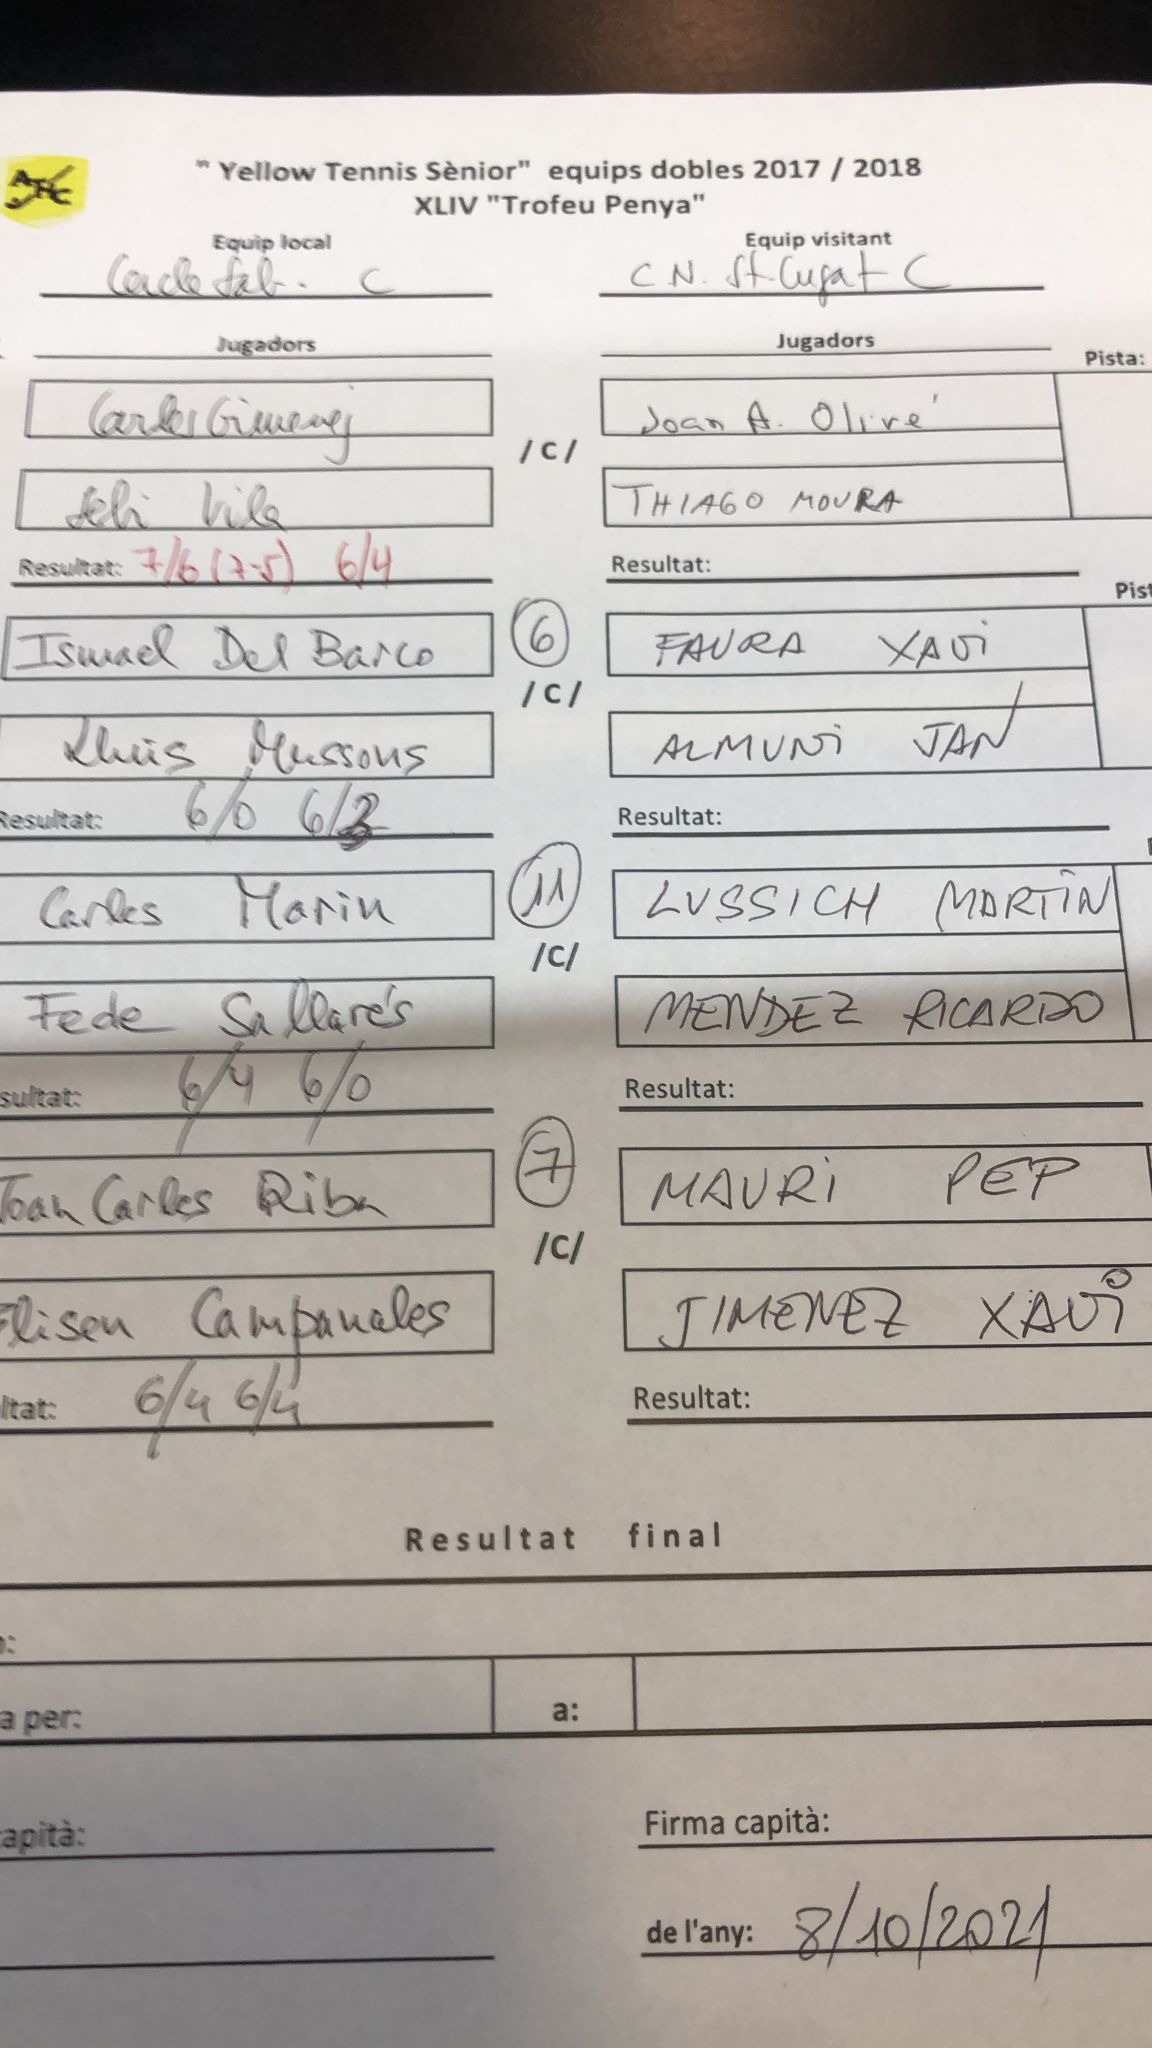 " Yellow Tennis Sènior" equips dobles 2017 / 2018
XLIV "Trofeu Penya"
Equip local Equip visitant
C C N. St. Cugat C
Jugadors Jugadors
Pista:
Carles Gimenez /C/ Joan A. Olivé
Vila THIAGO MOURA
Resultat: 7/6 (7-5) 6/4 Resultat:
Ismael Del Barco 6 FAURA XAVi
/C/
Lluis Mussons ALMUNi JAN
Resultat: 6/0 6/3 Resultat:
Carles Marin 11 LUSSICH MARTÍN
/C/
Fede Sallarés MENDEZ RICARDO
sultat: 6/4 6/0 Resultat:
Joan Carles Riba 7 MAURi PEP
/C/
Eliseu Campanales JIMENEZ XAVi
ltat: 6/4 6/4 Resultat:
Resultat final
a per: a:
apità: Firma capità:
de l'any: 8/10/2021